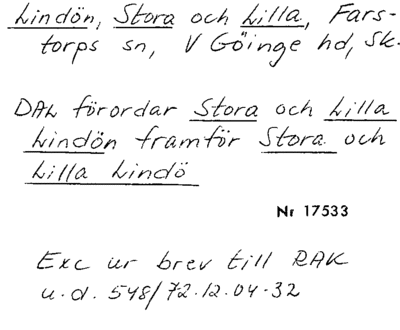 Lindön, Stora och Lilla, Fars-
torps sn, V Göinge hd, Sk.
DAL förordar Stora och Lilla
Lindön framför Stora och
Lilla Lindö
Nr 17533
Exc ur brev till RAK
u.d. 548/72.12.04-32